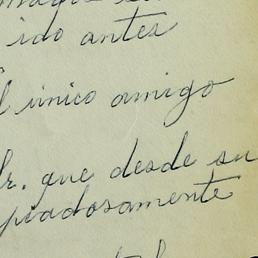 ido antes
único amigo
que desde su
piadosamente